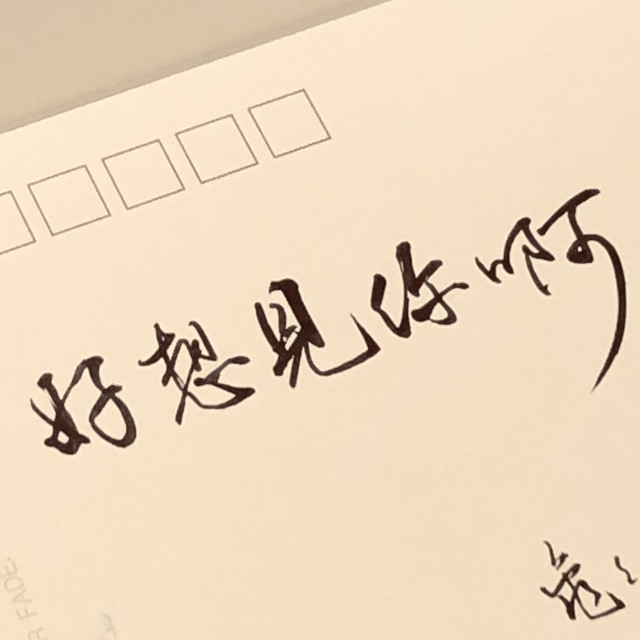 好想見你啊
R FADE.